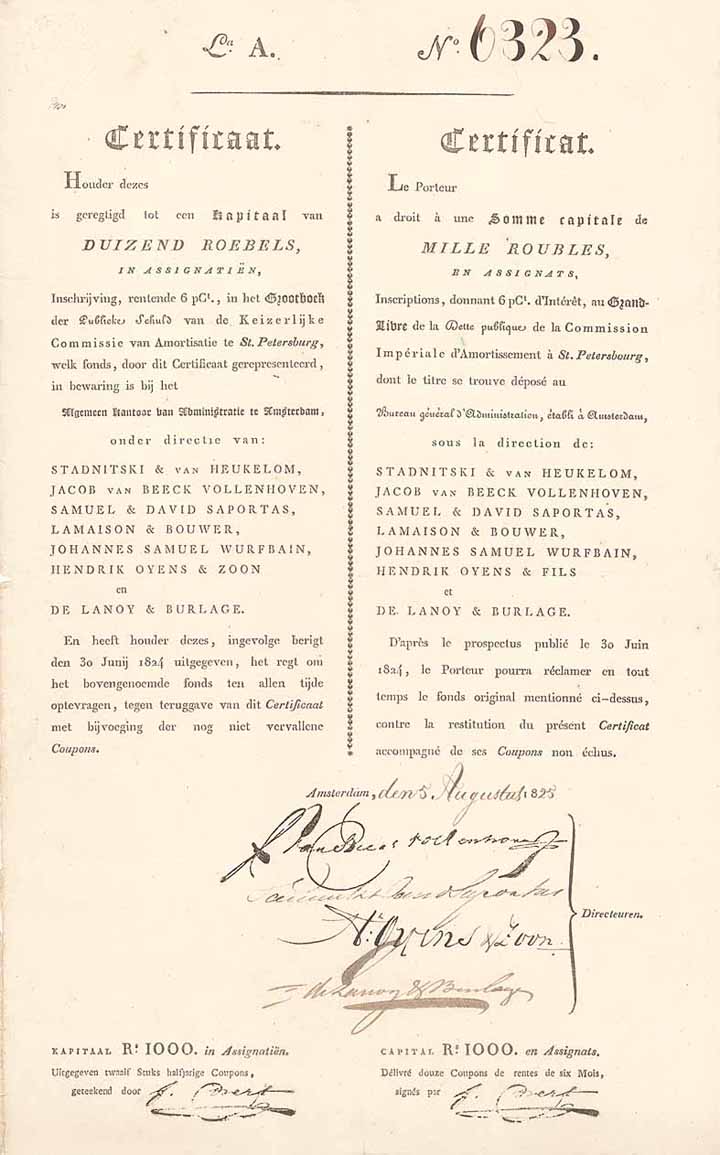 La A.
No. 6323.
Certificaat.
Houder dezes
is geregtigd tot een Kapitaal van
DUIZEND ROEBELS,
IN ASSIGNATIËN,
Inschrijving, rentende 6 pCt., in het Grootboek
der Publieke Schuld van de Keizerlijke
Commissie van Amortisatie te St. Petersburg,
welk fonds, door dit Certificaat gerepresenteerd,
in bewaring is bij het
Algemeen Kantoor van Administratie te Amsterdam,
onder directie van:
STADNITSKI & VAN HEUKELOM,
JACOB VAN BEECK VOLLENHOVEN,
SAMUEL & DAVID SAPORTAS,
LAMAISON & BOUWER,
JOHANNES SAMUEL WURFBAIN,
HENDRIK OYENS & ZOON
en
DE LANOY & BURLAGE.
En heeft houder dezes, ingevolge berigt
den 30 Junij 1824 uitgegeven, het regt om
het bovengenoemde fonds ten allen tijde
optevragen, tegen teruggave van dit Certificaat
met bijvoeging der nog niet vervallene
Coupons.
Certificat.
Le Porteur
a droit à une Somme capitale de
MILLE ROUBLES,
EN ASSIGNATS,
Inscriptions, donnant 6 pCt. d'Intérêt, au Grand-
Libre de la Dette publique de la Commission
Impériale d'Amortissement à St. Petersbourg,
dont le titre se trouve déposé au
Bureau général d'Administration, établi à Amsterdam,
sous la direction de:
STADNITSKI & VAN HEUKELOM,
JACOB VAN BEECK VOLLENHOVEN,
SAMUEL & DAVID SAPORTAS,
LAMAISON & BOUWER,
JOHANNES SAMUEL WURFBAIN,
HENDRIK OYENS & FILS
et
DE LANOY & BURLAGE.
D'après le prospectus publié le 30 Juin
1824, le Porteur pourra réclamer en tout
temps le fonds original mentionné ci-dessus,
contre la restitution du présent Certificat
accompagné de ses Coupons non échus.
Amsterdam, den 5 Augustus 1825
J. van Beeck Vollenhoven
Samuel & David Saportas
H: Oyens & Zoon
de Lanoy & Burlage
Directeuren.
KAPITAAL Rs. 1000. in Assignatiën.
Uitgegeven twaalf Stuks halfjarige Coupons,
geteekend door
CAPITAL Rs. 1000. en Assignats.
Délivré douze Coupons de rentes de six Mois,
signés par